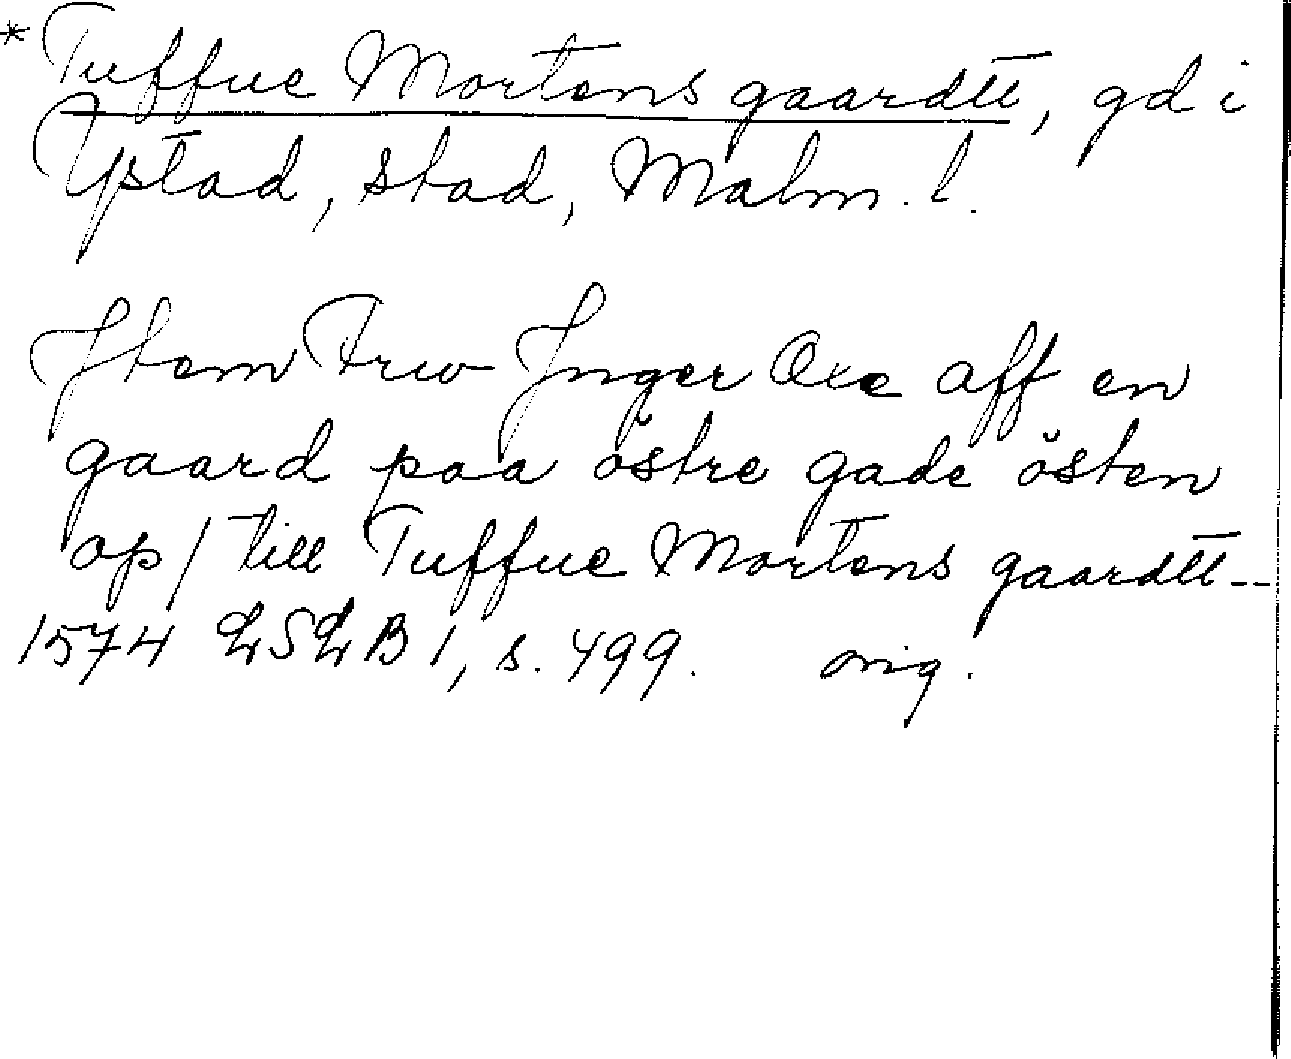 *Tuffue Mortens gaardtt, gd i
Ystad, stad, Malm. l.
Jtem Frw Jnger Oxe aff en
gaard paa östre gade östen
op / till Tuffue Mortens gaardtt--
1574 LSLB 1, s. 499. orig.